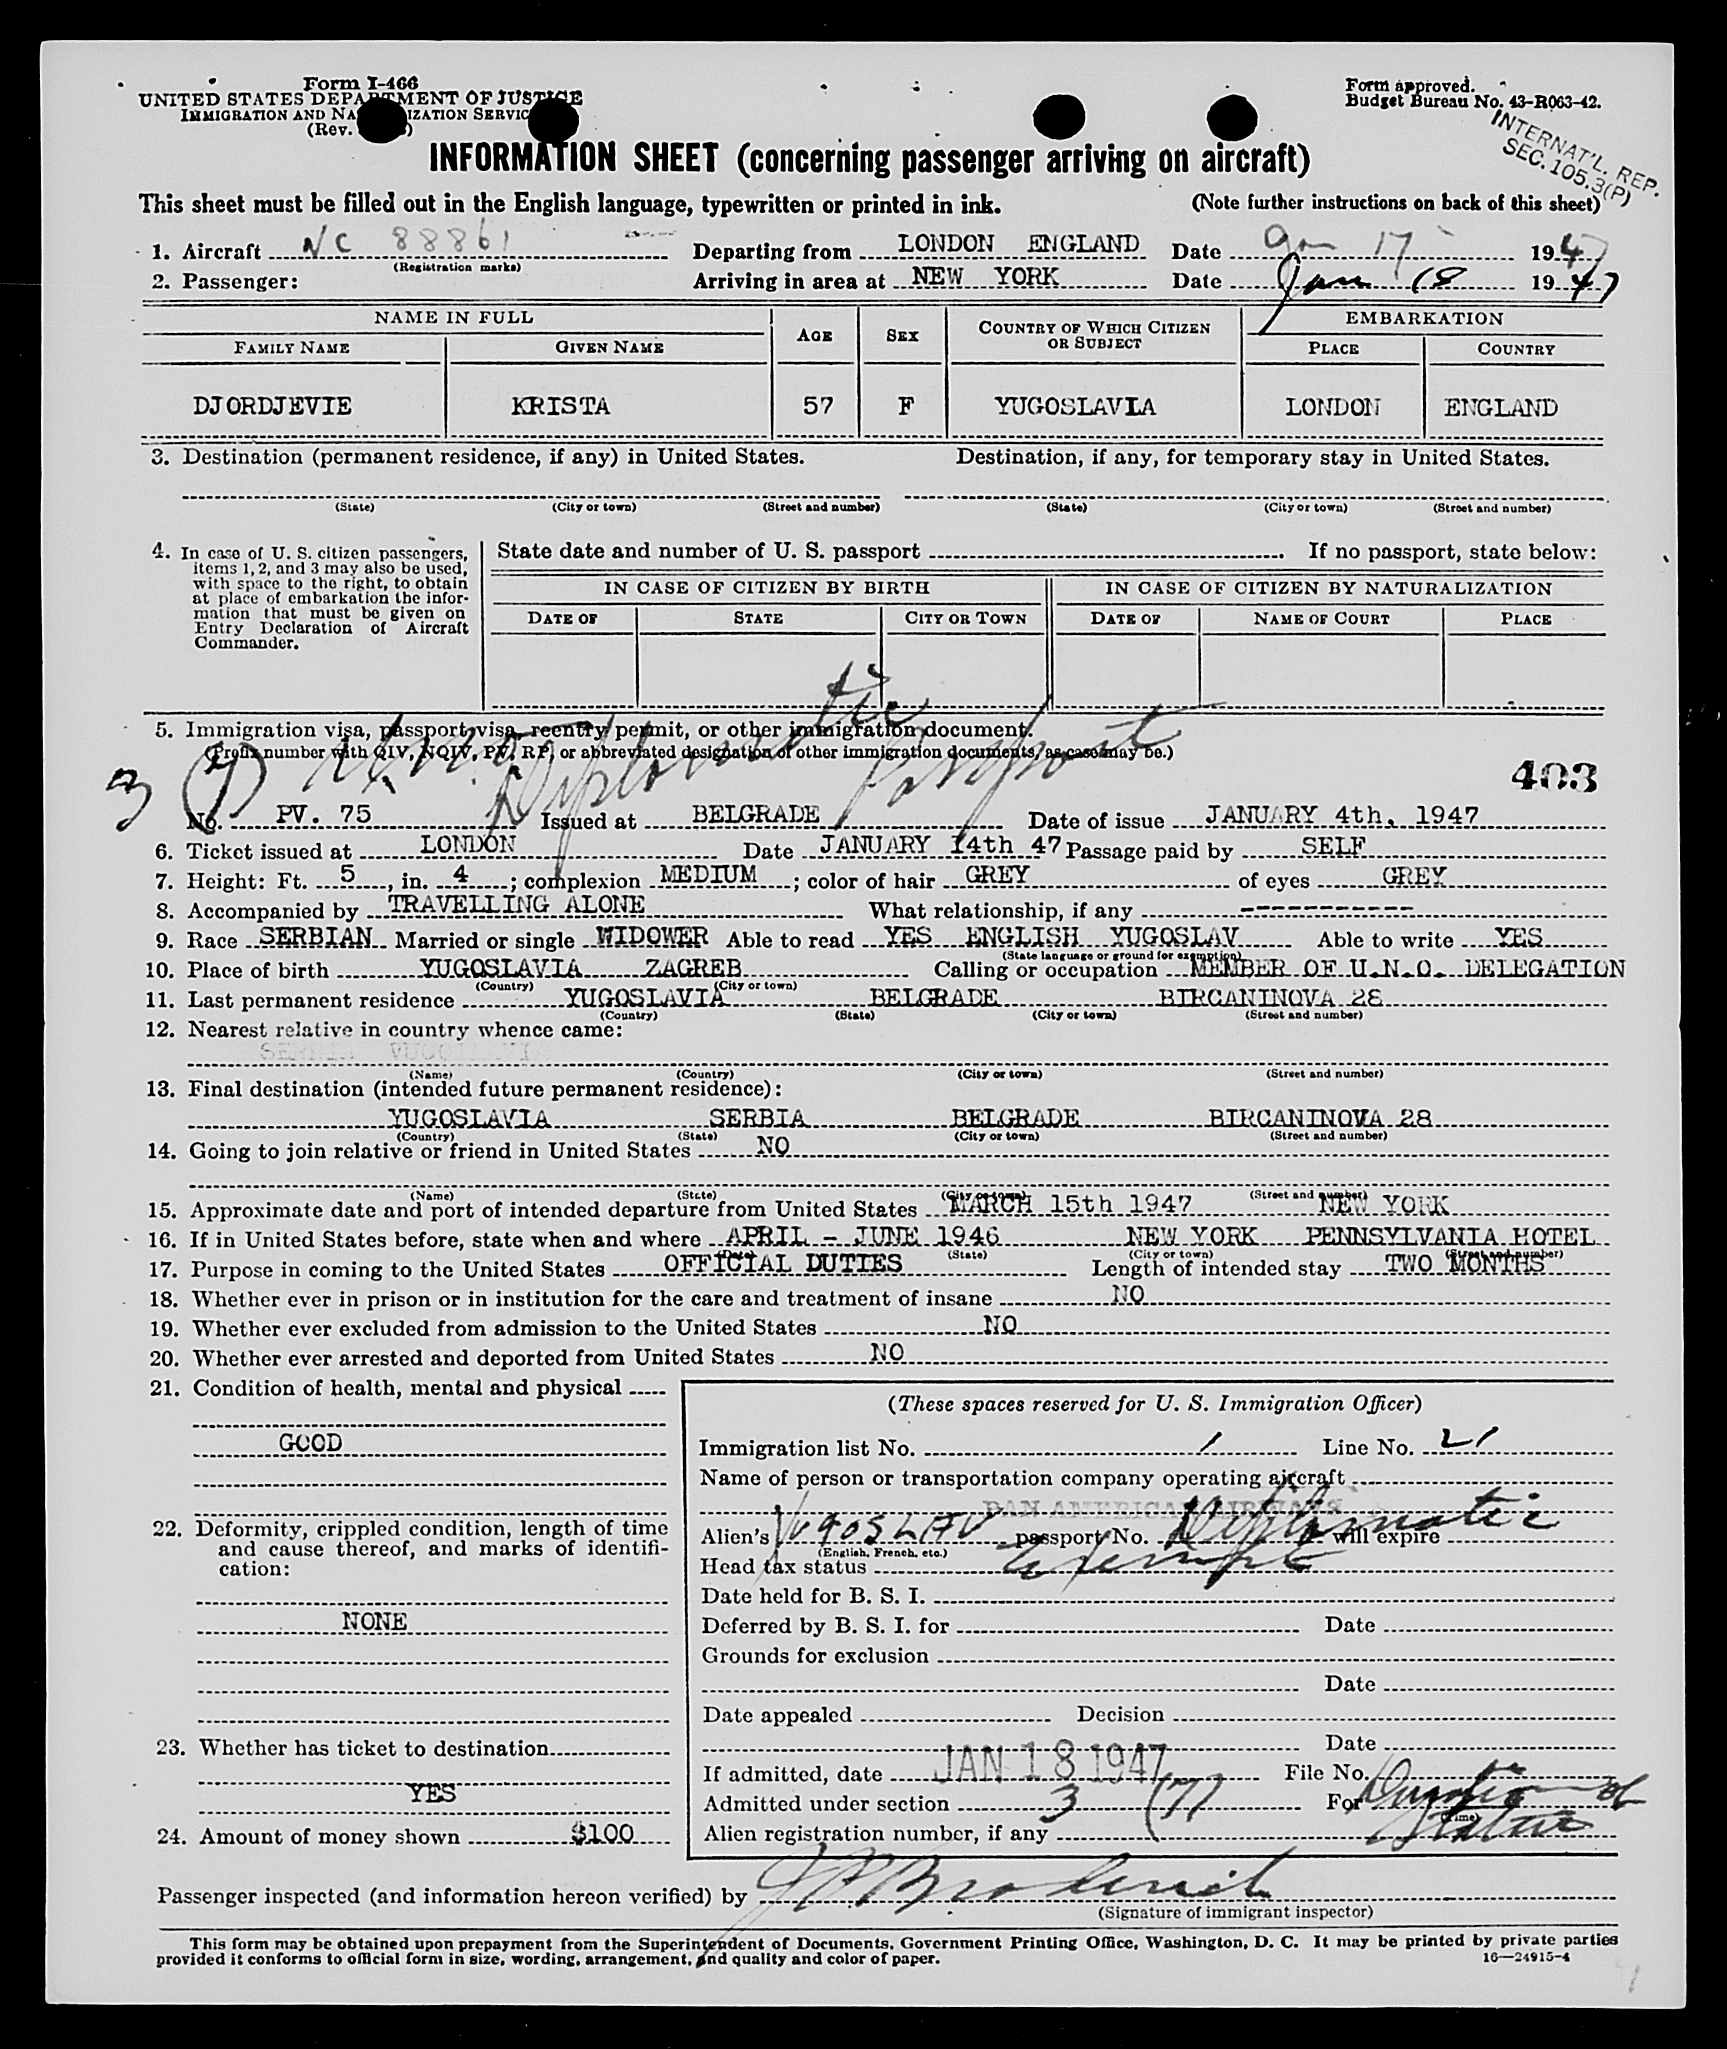 Form I-466
UNITED STATES DEPARTMENT OF JUSTICE
IMMIGRATION AND NATURALIZATION SERVICE
(Rev.
Form approved.
Budget Bureau No. 43-R063-42.
INTERNAT'L. REP.
SEC. 105.3(P)
INFORMATION SHEET (concerning passenger arriving on aircraft)
This sheet must be filled out in the English language, typewritten or printed in ink. (Note further instructions on back of this sheet)
1. Aircraft NC 88861 Departing from LONDON ENGLAND Date Jan 17 1947
(Registration marks)
2. Passenger: Arriving in area at NEW YORK Date Jan 18 1947
NAME IN FULL AGE SEX COUNTRY OF WHICH CITIZEN OR SUBJECT EMBARKATION
FAMILY NAME GIVEN NAME PLACE COUNTRY
DJORDJEVIE KRISTA 57 F YUGOSLAVIA LONDON ENGLAND
3. Destination (permanent residence, if any) in United States. Destination, if any, for temporary stay in United States.
(State) (City or town) (Street and number) (State) (City or town) (Street and number)
4. In case of U. S. citizen passengers,
items 1, 2, and 3 may also be used,
with space to the right, to obtain
at place of embarkation the infor-
mation that must be given on
Entry Declaration of Aircraft
Commander.
State date and number of U. S. passport If no passport, state below:
IN CASE OF CITIZEN BY BIRTH IN CASE OF CITIZEN BY NATURALIZATION
DATE OF STATE CITY OR TOWN DATE OF NAME OF COURT PLACE
5. Immigration visa, passport visa, reentry permit, or other immigration document.
(Prefix number with QIV, NQIV, PV, RP, or abbreviated designation of other immigration documents, as case may be.)
3 (7) Diplomatic passport
403
No. PV. 75 Issued at BELGRADE Date of issue JANUARY 4th, 1947
6. Ticket issued at LONDON Date JANUARY 14th 47 Passage paid by SELF
7. Height: Ft. 5, in. 4; complexion MEDIUM; color of hair GREY of eyes GREY
8. Accompanied by TRAVELLING ALONE What relationship, if any -----------
9. Race SERBIAN Married or single WIDOWER Able to read YES ENGLISH YUGOSLAV Able to write YES
(State language or ground for exemption)
10. Place of birth YUGOSLAVIA ZAGREB Calling or occupation MEMBER OF U.N.O. DELEGATION
(Country) (City or town)
11. Last permanent residence YUGOSLAVIA BELGRADE BIRCANINOVA 28
(Country) (State) (City or town) (Street and number)
12. Nearest relative in country whence came:
(Name) (Country) (City or town) (Street and number)
13. Final destination (intended future permanent residence):
YUGOSLAVIA SERBIA BELGRADE BIRCANINOVA 28
(Country) (State) (City or town) (Street and number)
14. Going to join relative or friend in United States NO
(Name) (State) (City or town) (Street and number)
15. Approximate date and port of intended departure from United States MARCH 15th 1947 NEW YORK
16. If in United States before, state when and where APRIL - JUNE 1946 NEW YORK PENNSYLVANIA HOTEL
(Date) (State) (City or town) (Street and number)
17. Purpose in coming to the United States OFFICIAL DUTIES Length of intended stay TWO MONTHS
18. Whether ever in prison or in institution for the care and treatment of insane NO
19. Whether ever excluded from admission to the United States NO
20. Whether ever arrested and deported from United States NO
21. Condition of health, mental and physical
GOOD
22. Deformity, crippled condition, length of time
and cause thereof, and marks of identifi-
cation:
NONE
23. Whether has ticket to destination
YES
24. Amount of money shown $100
(These spaces reserved for U. S. Immigration Officer)
Immigration list No. 1 Line No. 21
Name of person or transportation company operating aircraft
PAN AMERICAN AIRWAYS
Alien's Yugoslav passport No. Diplomatic will expire
(English, French, etc.)
Head tax status exempt
Date held for B. S. I.
Deferred by B. S. I. for Date
Grounds for exclusion
Date
Date appealed Decision
Date
If admitted, date JAN 18 1947 File No.
Admitted under section 3 (7) For Duration of Status
(Time)
Alien registration number, if any
Passenger inspected (and information hereon verified) by
(Signature of immigrant inspector)
This form may be obtained upon prepayment from the Superintendent of Documents, Government Printing Office, Washington, D. C. It may be printed by private parties
provided it conforms to official form in size, wording, arrangement, and quality and color of paper. 16—24915-4